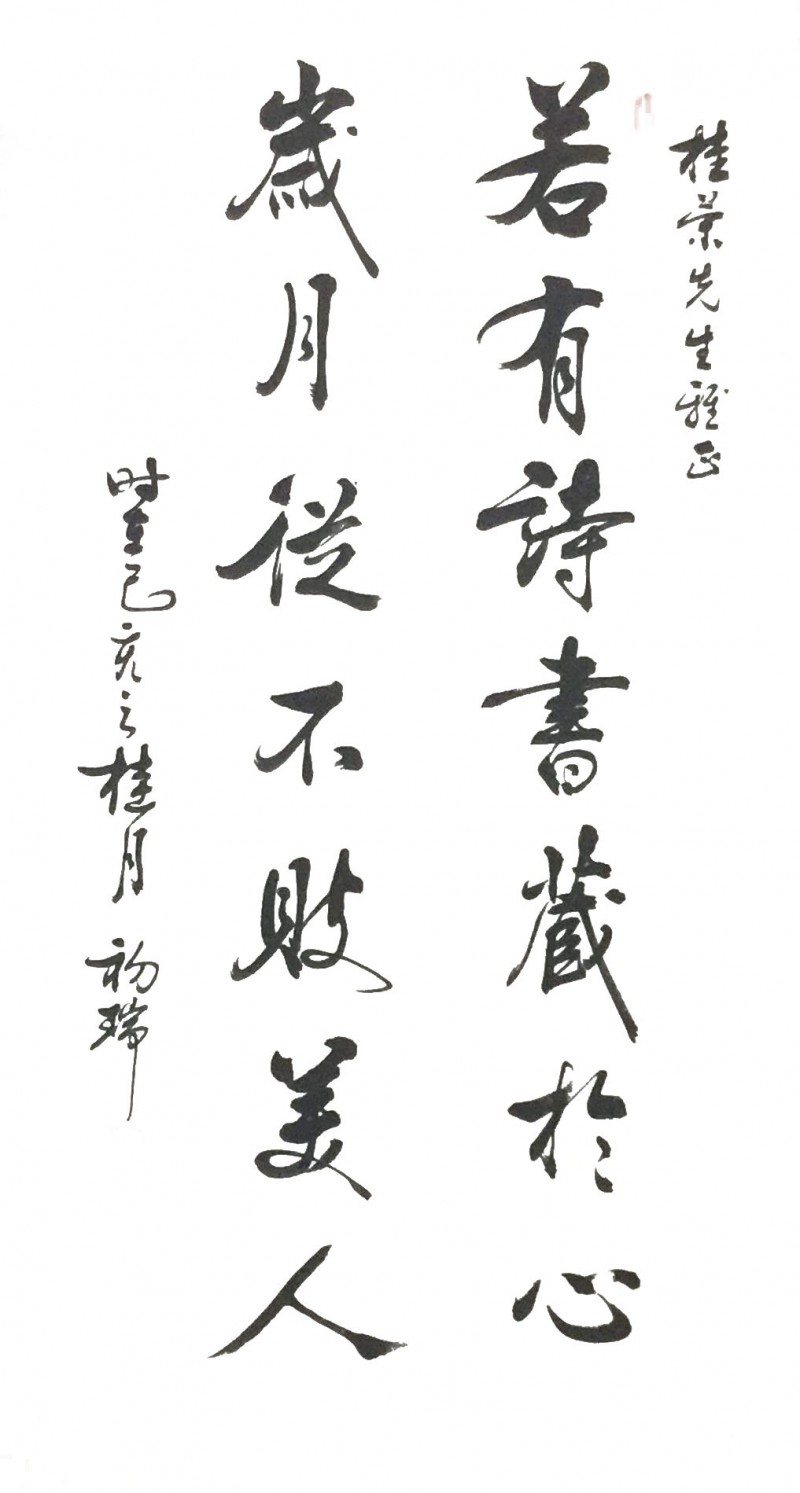 桂荣先生雅正
若有詩書藏於心
歲月從不敗美人
时在己亥之桂月 初瑞